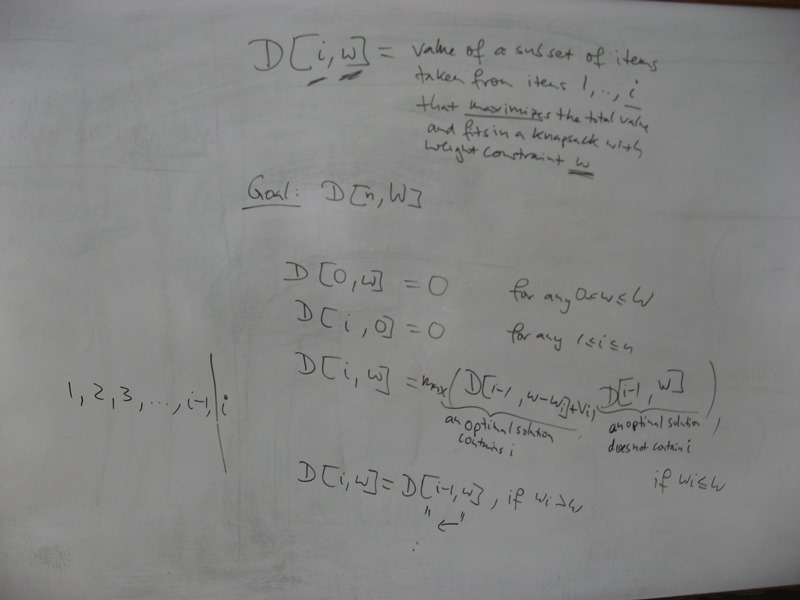 D[i, w] = value of a subset of items
taken from items 1, .., i
that maximizes the total value
and fits in a knapsack with
weight constraint w
Goal: D[n, W]
D[0, w] = 0 for any 0≤w≤W
D[i, 0] = 0 for any 1≤i≤n
D[i, w] = max(D[i-1, w-wi]+vi, D[i-1, w]),
an optimal solution contains i
an optimal solution does not contain i
if wi≤w
1, 2, 3, ..., i-1, | i
D[i, w] = D[i-1, w], if wi>w
"←"